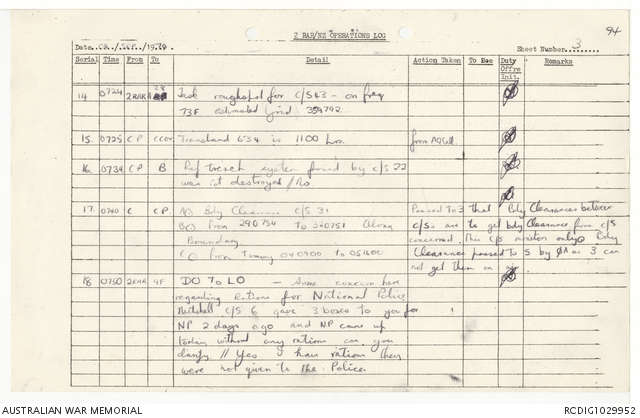 94
2 RAR/NZ OPERATIONS LOG
Date 08 / SEP / 1970 Sheet Number 3
Serial Time From To Detail Action Taken To Dec Duty Offrs Init. Remarks
14 0724 2RAR for C/S 43 – on freq
73F estimated Grid 394792
15. 0725 CP CCOY Transland 634 is 1100 hrs. from
16. 0734 CP B Ref trench system found by C/S 22
was it destroyed / No
17. 0740 C CP A() Bdy Clearance C/S 31 Passed to 3 that Bdy Clearance between
B() From 290754 To 290751 Along C/Ss are to get bdy Clearance from C/S
Boundary concerned. This C/S only. Bdy
C() From Tommy 040900 To 051600 Clearance passed to 5 by as 3 can
not get them on
18 0750 2RAR 4F DO To LO – Some concern here
regarding Rations for National Police
C/S 6 gave 3 boxes to you for
NP 2 days ago and NP came up
today without any rations can you
clarify // Yes I have rations they
were not given to the Police.
AUSTRALIAN WAR MEMORIAL RCDIG1029952